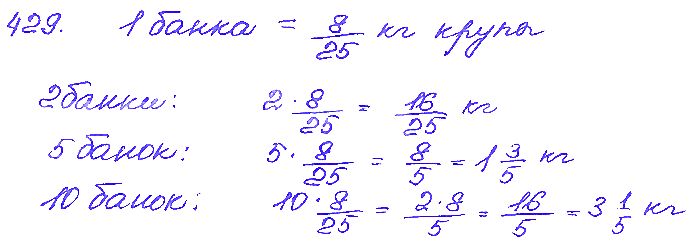 429. 1 банка = 8/25 кг крупы
2 банки: 2 · 8/25 = 16/25 кг
5 банок: 5 · 8/25 = 8/5 = 1 3/5 кг
10 банок: 10 · 8/25 = 2·8/5 = 16/5 = 3 1/5 кг